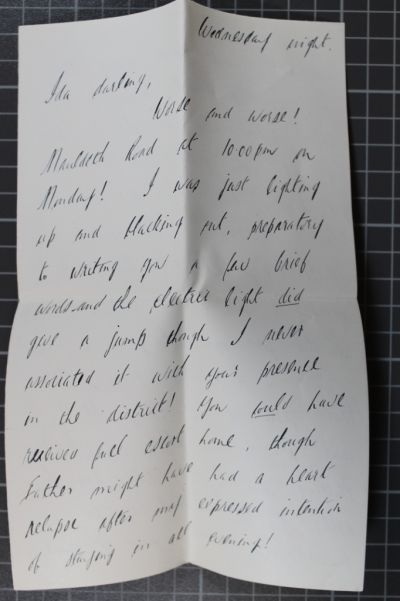 Wednesday night.
Ida darling,
Worse and worse!
Mauldeth Road at 10.00pm on
Monday! I was just lighting
up and blacking out, preparatory
to writing you a few brief
words and the electric light did
give a jump though I never
associated it with your presence
in the district! You could have
received full escort home, though
Father might have had a heart
relapse after my expressed intention
of staying in all evening!